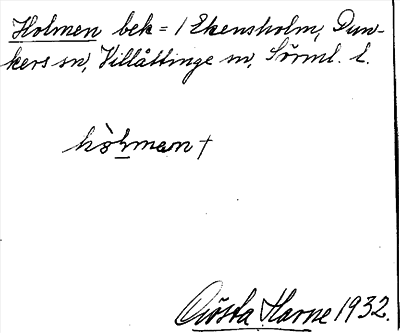 Holmen bek = / Ekensholm, Dun-
kers sn, Villåttinge sn, Sörml. l.
hòlmæn †
Gösta Harne 1932.